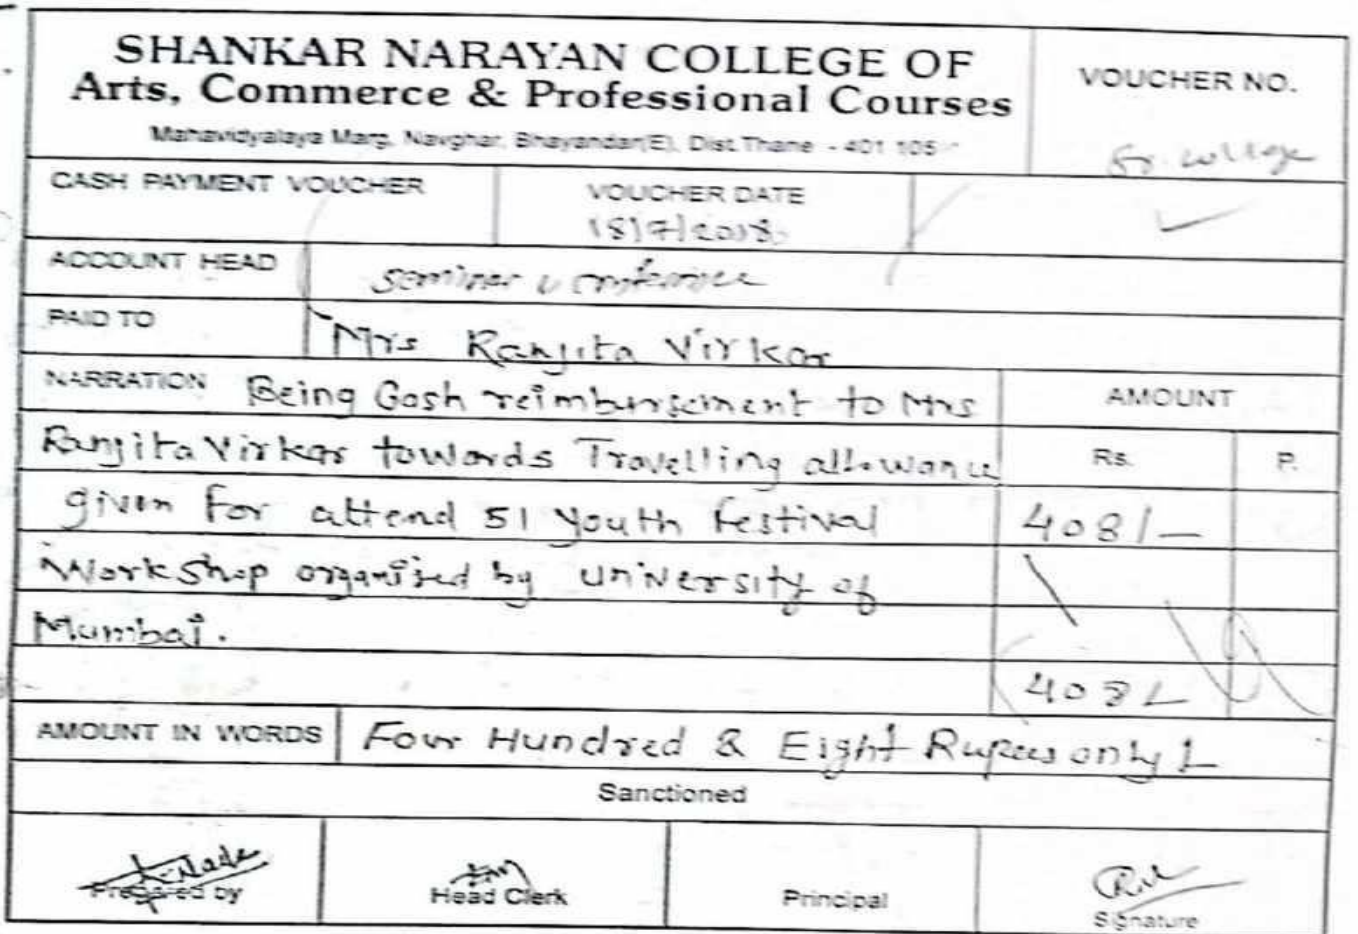 SHANKAR NARAYAN COLLEGE OF
Arts, Commerce & Professional Courses
Mahavidyalaya Marg, Navghar, Bhayandar(E), Dist.Thane - 401 105
VOUCHER NO.
Sr. college
CASH PAYMENT VOUCHER
VOUCHER DATE
18/7/2018
ACCOUNT HEAD
seminar & conference
PAID TO
Mrs Ranjita Virkar
NARRATION Being Cash reimbursement to Mrs
AMOUNT
Ranjita Virkar towards Travelling allowance
Rs. P.
given for attend 51 Youth festival
408/-
Workshop organised by university of
Mumbai.
408/-
AMOUNT IN WORDS Four Hundred & Eight Rupees only
Sanctioned
Prepared by
Head Clerk
Principal
Signature